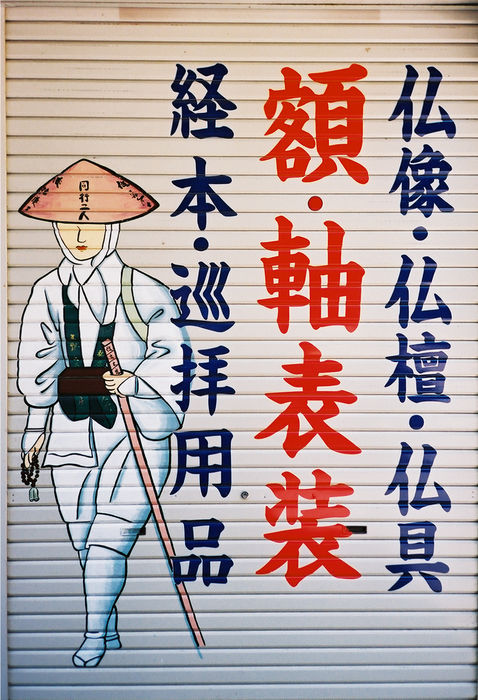 仏像・仏檀・仏具
額・軸表装
経本・巡拝用品
同行二人